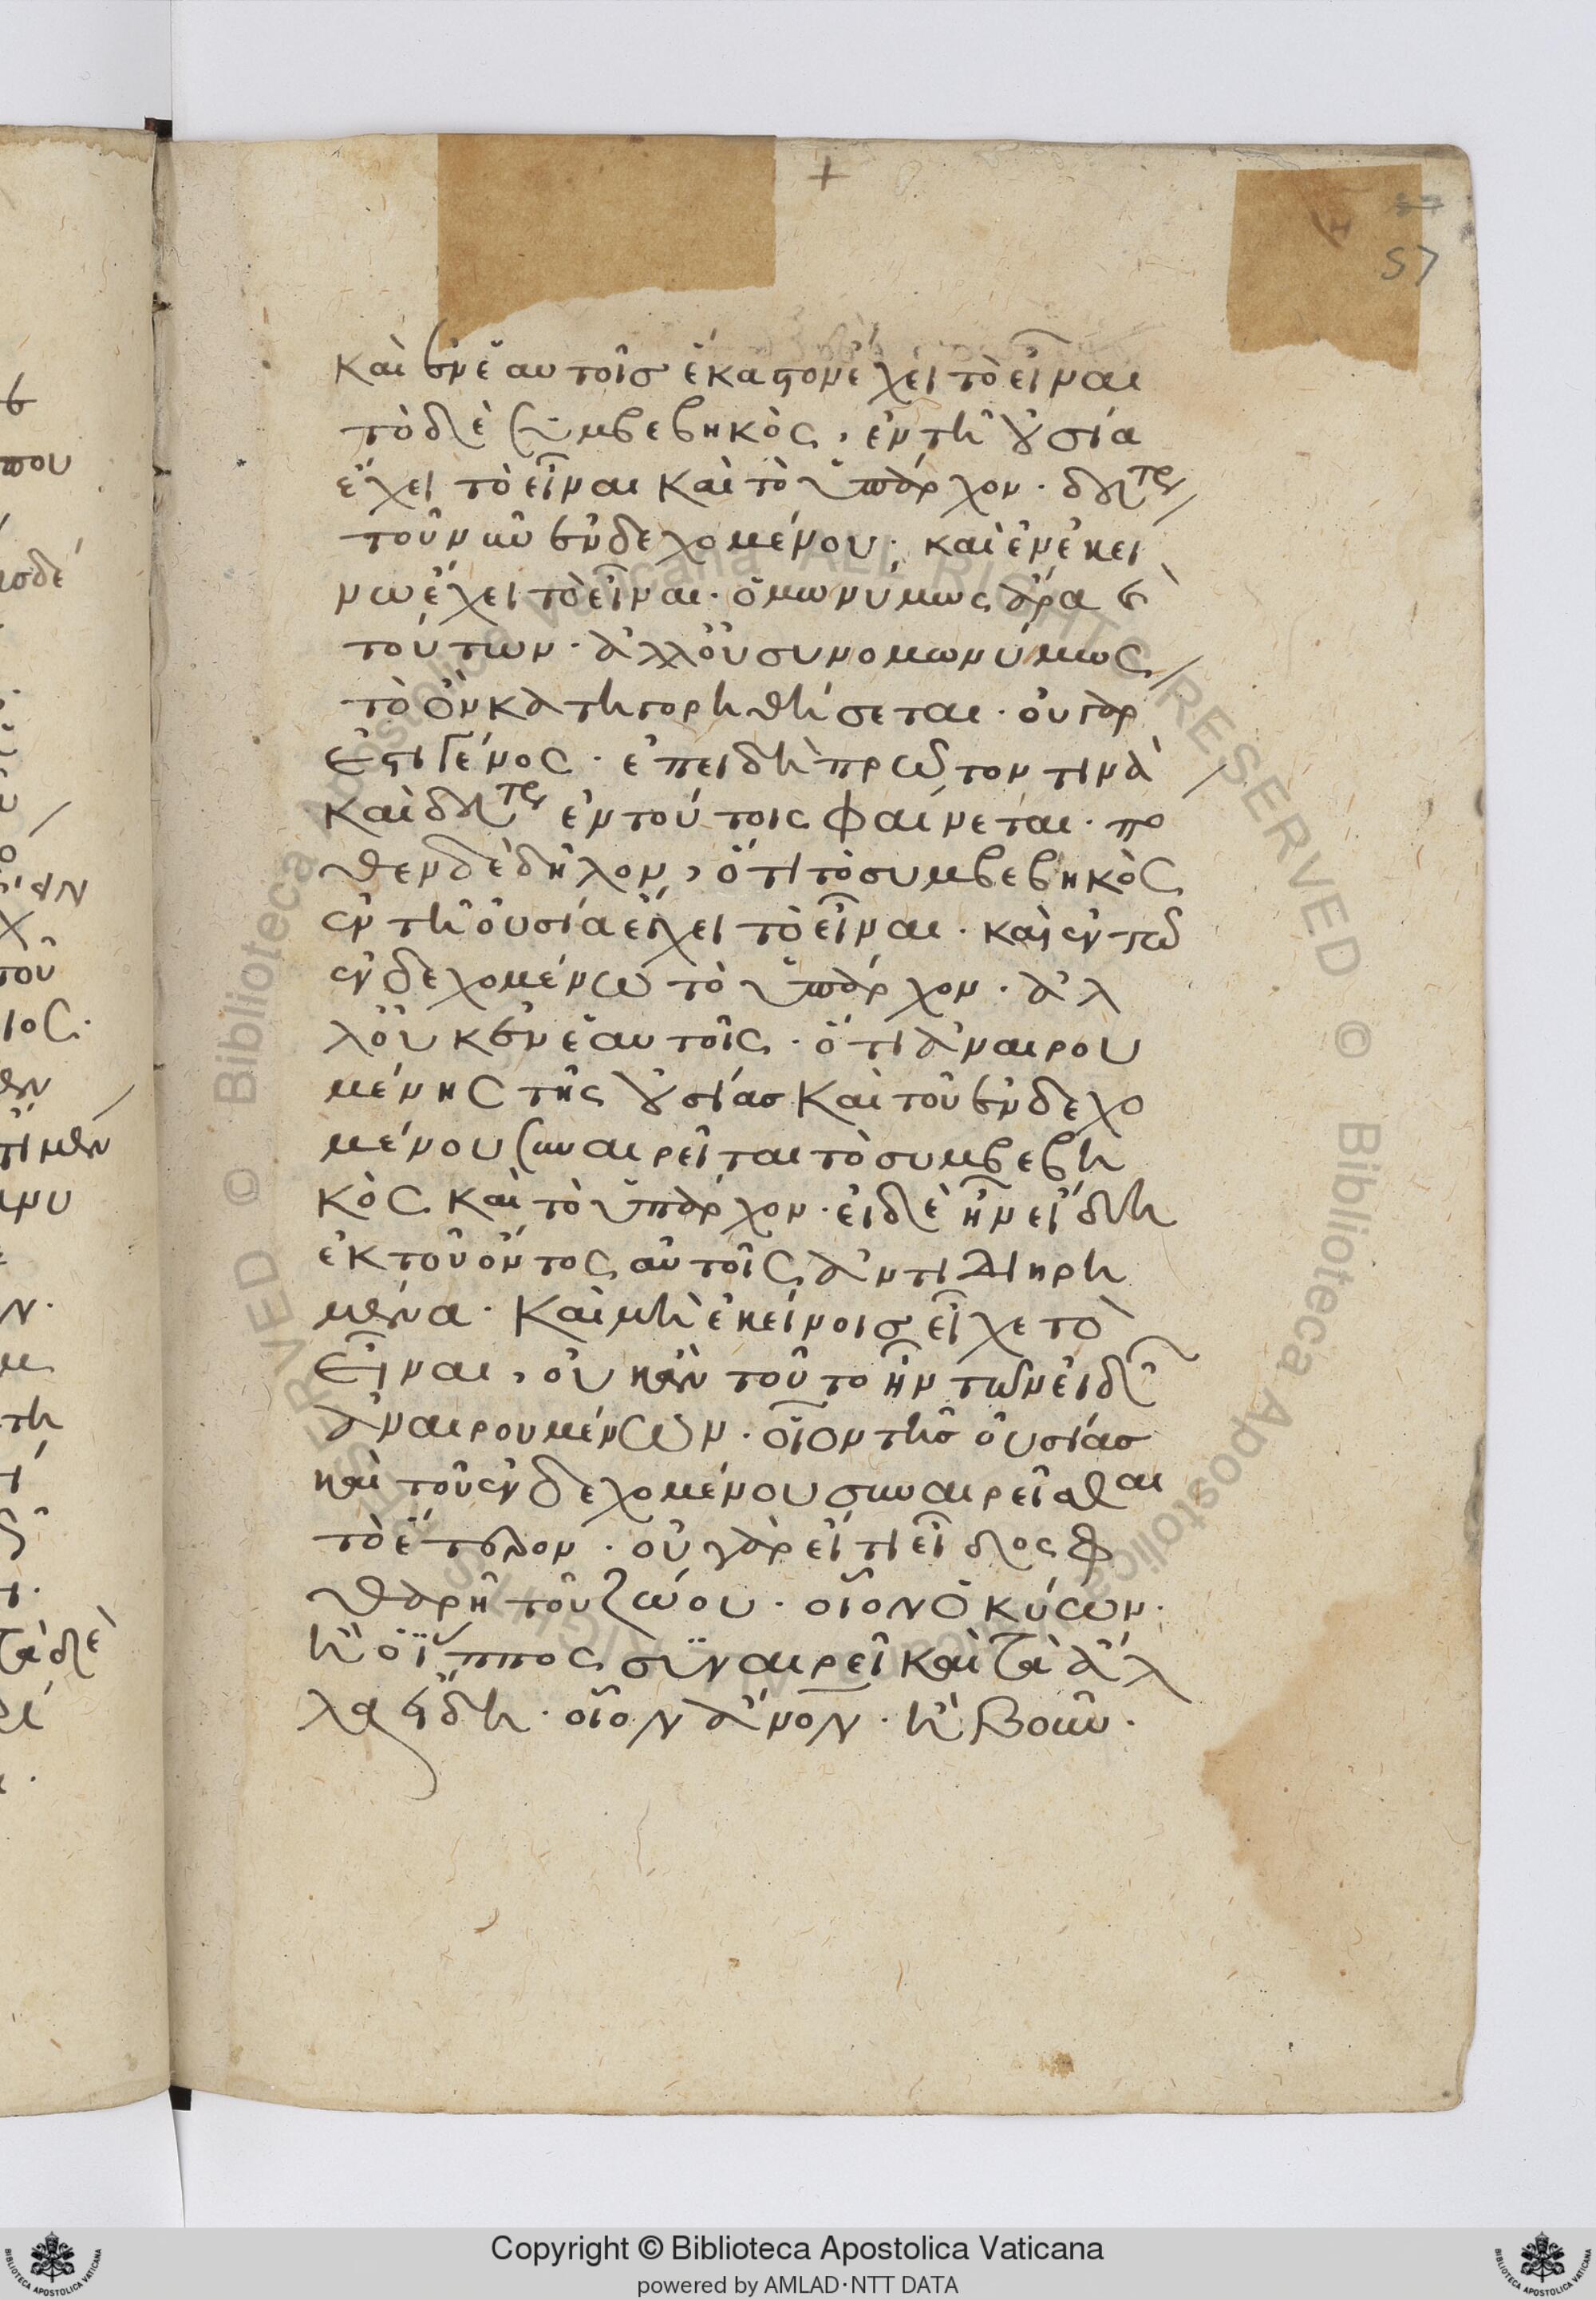 57
καὶ ἐν ἑαυτοῖσ ἕκαστον ἔχει τὸ εἶναι
τὸ δὲ συμβεβηκὸς, ἐν τῆ οὐσία
ἔχει τὸ εἶναι καὶ τὸ ὑπάρχον.
τοῦν ἐνδεχομένου. καὶ ἐν ἐκεί
νω ἔχει τὸ εἶναι. ὁμωνύμως ἄρα
τούτων. ἀλλ' οὐ συνομωνύμως
τὸ ὂν κατηγορηθήσεται. οὐ γὰρ
ἐστι γένος. ἐπειδὴ πρῶτον τινὰ
καὶ ἐν τούτοις φαίνεται.
θεν δὲ δῆλον, ὅτι τὸ συμβεβηκὸς
ἐν τῆ οὐσία ἔχει τὸ εἶναι. καὶ ἐν τῶ
ἐνδεχομένω τὸ ὑπάρχον. ἀλ
λ' οὐκ ἐν ἑαυτοῖς. ὅτι ἀναιρου
μένης τῆς οὐσίασ καὶ τοῦ ἐνδεχο
μένου συναιρεῖται τὸ συμβεβη
κὸς καὶ τὸ ὑπάρχον. εἰ δὲ ἦν εἴδη
ἐκ τοῦ ὄντος αὐτοῖς ἀντιδιηρη
μένα. καὶ μὴ ἐκείνοισ εἶχε τὸ
εἶναι, οὐκ ἂν τοῦτο ἦν τῶν εἰδῶν
ἀναιρουμένων. οἷον τῆσ οὐσίασ
καὶ τοῦ ἐνδεχομένου συναιρεῖσθαι
τὸ ἕτερον. οὐ γὰρ εἴ τι εἶδος φ
θαρῆ τοῦ ζώου. οἷον ὁ κύων.
ἢ ὁ ἵππος συναιρεῖ καὶ τὰ ἄλ
λα εἴδη. οἷον ἄνον. ἢ βοῦν.
Copyright © Biblioteca Apostolica Vaticana
powered by AMLAD·NTT DATA